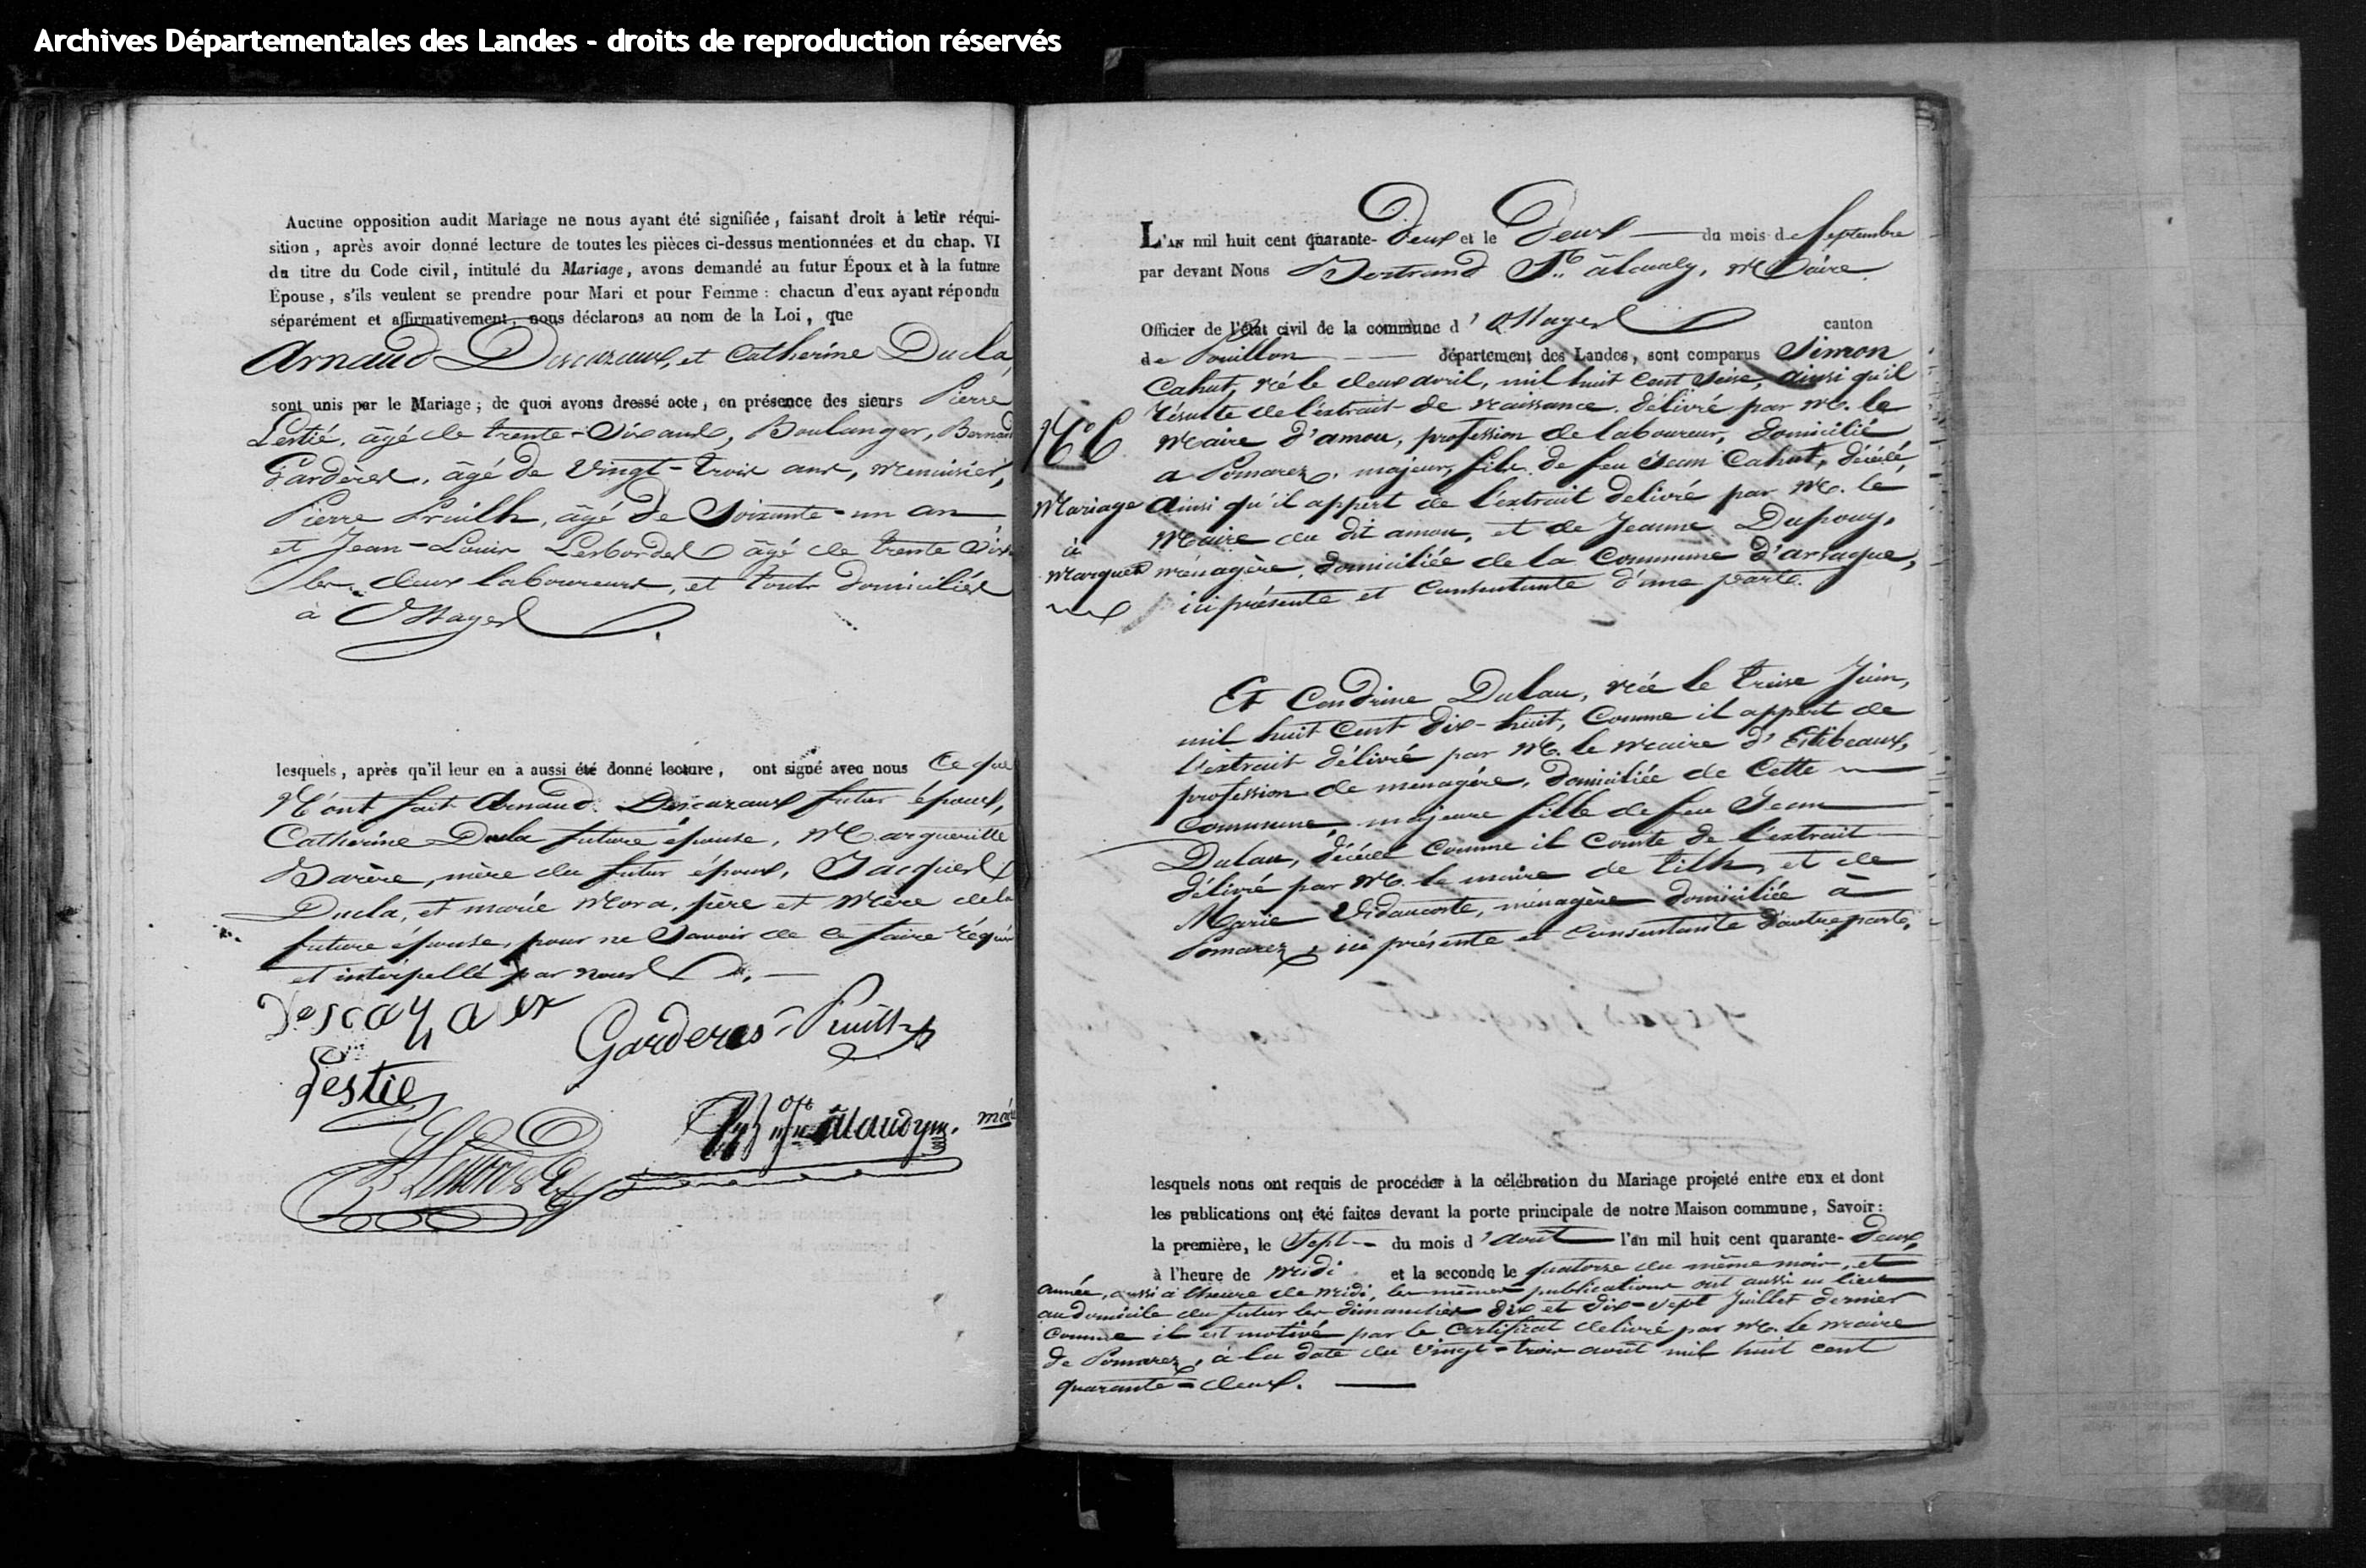 Archives Départementales des Landes - droits de reproduction réservés
Aucune opposition audit Mariage ne nous ayant été signifiée, faisant droit à leur réqui-
sition, après avoir donné lecture de toutes les pièces ci-dessus mentionnées et du chap. VI
du titre du Code civil, intitulé du Mariage, avons demandé au futur Époux et à la future
Épouse, s'ils veulent se prendre pour Mari et pour Femme : chacun d'eux ayant répondu
séparément et affirmativement, nous déclarons au nom de la Loi, que
Arnaud Descazaux, et Catherine Ducla,
sont unis par le Mariage ; de quoi avons dressé acte, en présence des sieurs Pierre
Lestié, âgé de trente-six ans, Boulanger, Bernard
Gardères, âgé de vingt-trois ans, menuisier,
Pierre Pruilh, âgé de soixante-un an
et Jean-Louis Lesbordes âgé de trente six
les deux laboureurs, et tous domiciliés
à Ossages
lesquels, après qu'il leur en a aussi été donné lecture, ont signé avec nous Ce que
N'ont fait Arnaud Descazaux futur époux,
Catherine Ducla future épouse, Margueritte
Barère, mère du futur époux, Jacques
Ducla, et marie Mora, père et Mère de la
future épouse, pour ne savoir de ce faire réquis
et interpellé par nous
Descazaux
Garderes Pruilh
Lestie
maire
L'AN mil huit cent quarante- Deux et le Deux du mois de Septembre
par devant Nous Bertrand Maire
Officier de l'état civil de la commune d'Ossages canton
de Pouillon département des Landes, sont comparus Simon
Cahut, né le deux avril, mil huit cent seize, ainsi qu'il
résulte de l'extrait de naissance délivré par M. le
N° 6 Maire d'amou, profession de laboureur, domicilié
a Pomarez, majeur, fils de feu Jean Cahut, décédé,
Mariage ainsi qu'il appert de l'extrait delivré par M. le
à Maire du dit amou, et de Jeanne Dupouy,
marquer ménagère, domiciliée de la Commune d'arsague,
ici présente et Consentante d'une part.
Et Condrine Dulau, née le treize Juin,
mil huit cent dix-huit, comme il appert de
l'extrait délivré par M. le maire d'Estibeaux,
profession de menagère, domiciliée de Cette
Commune, majeure fille de feu Jean
Dulau, décédé comme il conste de l'extrait
délivré par M. le maire de tilh, et de
Marie Vidaucoste, ménagère domiciliée à
Pomarez, ici présente et Consentante d'autre part,
lesquels nous ont requis de procéder à la célébration du Mariage projeté entre eux et dont
les publications ont été faites devant la porte principale de notre Maison commune, Savoir :
la première, le Sept du mois d'août l'an mil huit cent quarante- deux,
à l'heure de midi et la seconde le quatorze du même mois, et
année, aussi à l'heure de midi, les mêmes publications ont aussi eu lieu
au domicile du futur les dimanches dix et dix-sept Juillet dernier
comme il est motivé par le Certificat delivré par M. le maire
de Pomarez, à la date du vingt-trois août mil huit cent
quarante-deux.